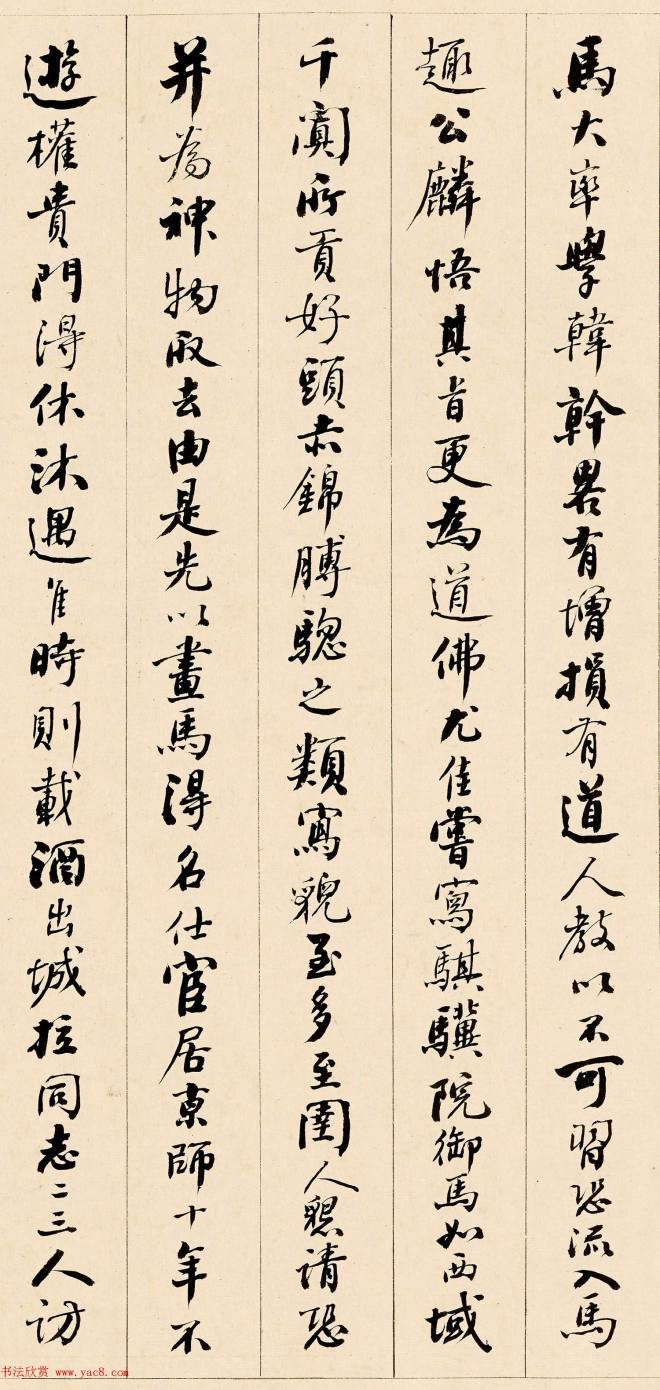 馬大率學韓幹畧有增損有道人教以不可習恐流入馬
趣公麟悟其旨更為道佛尤佳嘗寫騏驥院御馬如西域
于闐所貢好頭赤錦膊驄之類寫貌至多至圉人懇請恐
并為神物取去由是先以畫馬得名仕宦居京師十年不
遊權貴門得休沐遇佳時則載酒出城拉同志二三人訪
书法欣赏 www.yac8.com